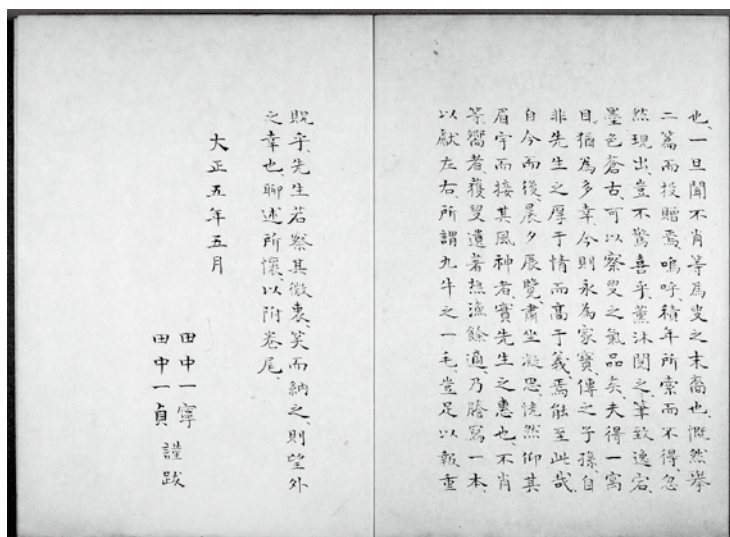 也、一旦聞不肖等為叟之末裔也、慨然挙
二篇而投贈焉、嗚呼、積年所索而不得、忽
然現出、豈不驚喜乎、薫沐閲之、筆致逸宕、
墨色蒼古、可以察叟之氣品矣、夫得一寓
目、猶為多幸、今則永為家寶、傳之子孫、自
非先生之厚于情而高于義、焉能至此哉、
自今而後、晨夕展覧、肅坐凝思、恍然仰其
眉宇而接其風神者、實先生之惠也、不肖
等嚮者獲叟遺著樵漁餘適、乃謄寫一本、
以献左右、所謂九牛之一毛、豈足以報重
貺乎、先生若察其微衷、笑而納之、則望外
之幸也、聊述所懐、以附巻尾、
大正五年五月
田中一寧
田中一貞 謹跋